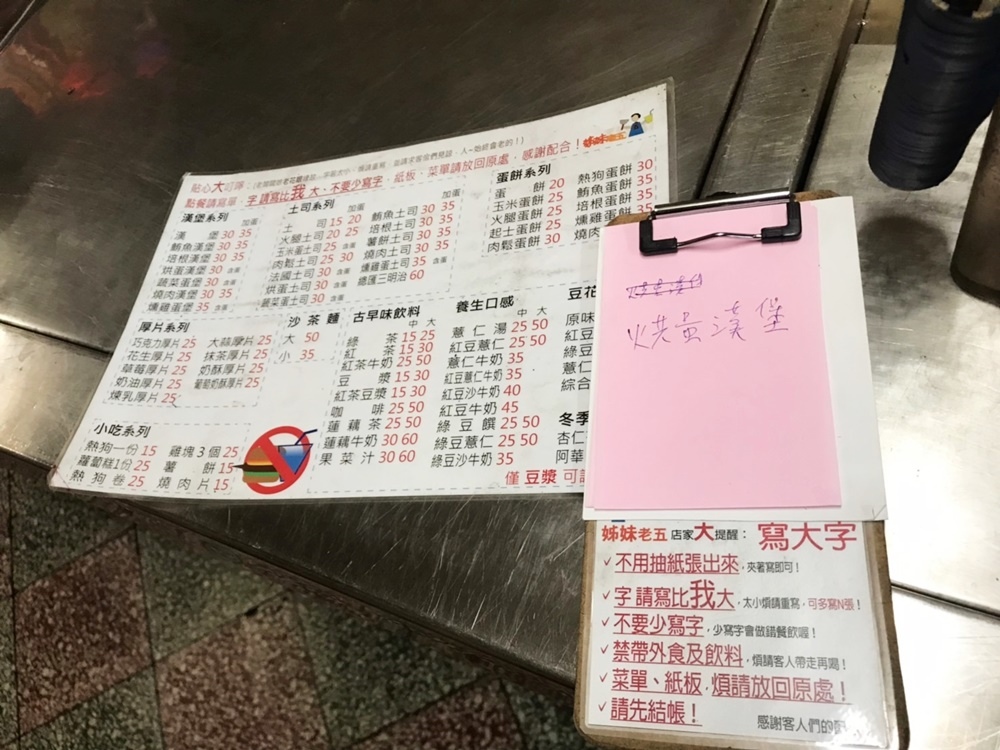 貼心大叮嚀：
姊妹老五
點餐請寫單，字請寫比我大、不要少寫字，紙板、菜單請放回原處，感謝配合！
漢堡系列 加蛋
漢 堡 30 35
鮪魚漢堡 30 35
培根漢堡 30 35
烘蛋漢堡 30 含蛋
蔬菜蛋堡 30 含蛋
燒肉漢堡 30 35
燻雞蛋堡 35 含蛋
土司系列 加蛋 加蛋
土 司 15 20
火腿土司 20 25
玉米蛋土司 25 含蛋
肉鬆土司 25 30
法國土司 30 含蛋
烘蛋土司 30 含蛋
蔬菜蛋土司 30 含蛋
鮪魚土司 30 35
培根土司 30 35
薯餅土司 30 35
燒肉土司 30 35
燻雞蛋土司 35 含蛋
總匯三明治 60
蛋餅系列
蛋 餅 20
玉米蛋餅 25
火腿蛋餅 25
起士蛋餅 25
肉鬆蛋餅 30
熱狗蛋餅 30
鮪魚蛋餅 35
培根蛋餅 35
燻雞蛋餅 35
燒肉
厚片系列
巧克力厚片 25 大蒜厚片 25
花生厚片 25 抹茶厚片 25
草莓厚片 25 奶酥厚片 25
奶油厚片 25 葡萄奶酥厚片 25
煉乳厚片 25
沙茶麵
大 50
小 35
古早味飲料
中 大
綠 茶 15 25
紅 茶 15 30
紅茶牛奶 25 50
豆 漿 15 30
紅茶豆漿 15 30
咖 啡 25 50
蓮藕茶 25 50
蓮藕牛奶 30 60
果菜汁 30 60
養生口感
中 大
薏仁湯 25 50
紅豆薏仁 25 50
薏仁牛奶 35
紅豆薏仁牛奶 35
紅豆沙牛奶 40
紅豆牛奶 45
綠豆饌 25 50
綠豆薏仁 25 50
綠豆沙牛奶 35
豆花
原味
紅豆
綠豆
薏仁
綜合
冬季
杏仁
阿華
僅豆漿可
小吃系列
熱狗一份 15 雞塊3個 25
蘿蔔糕1份 25 薯 餅 15
熱狗卷 25 燒肉片 15
烘蛋漢堡
姊妹老五 店家大提醒： 寫大字
✓ 不用抽紙張出來，夾著寫即可！
✓ 字請寫比我大，太小煩請重寫，可多寫N張！
✓ 不要少寫字，少寫字會做錯餐飲喔！
✓ 禁帶外食及飲料，煩請客人帶走再喝！
✓ 菜單、紙板，煩請放回原處！
✓ 請先結帳！
感謝客人們的